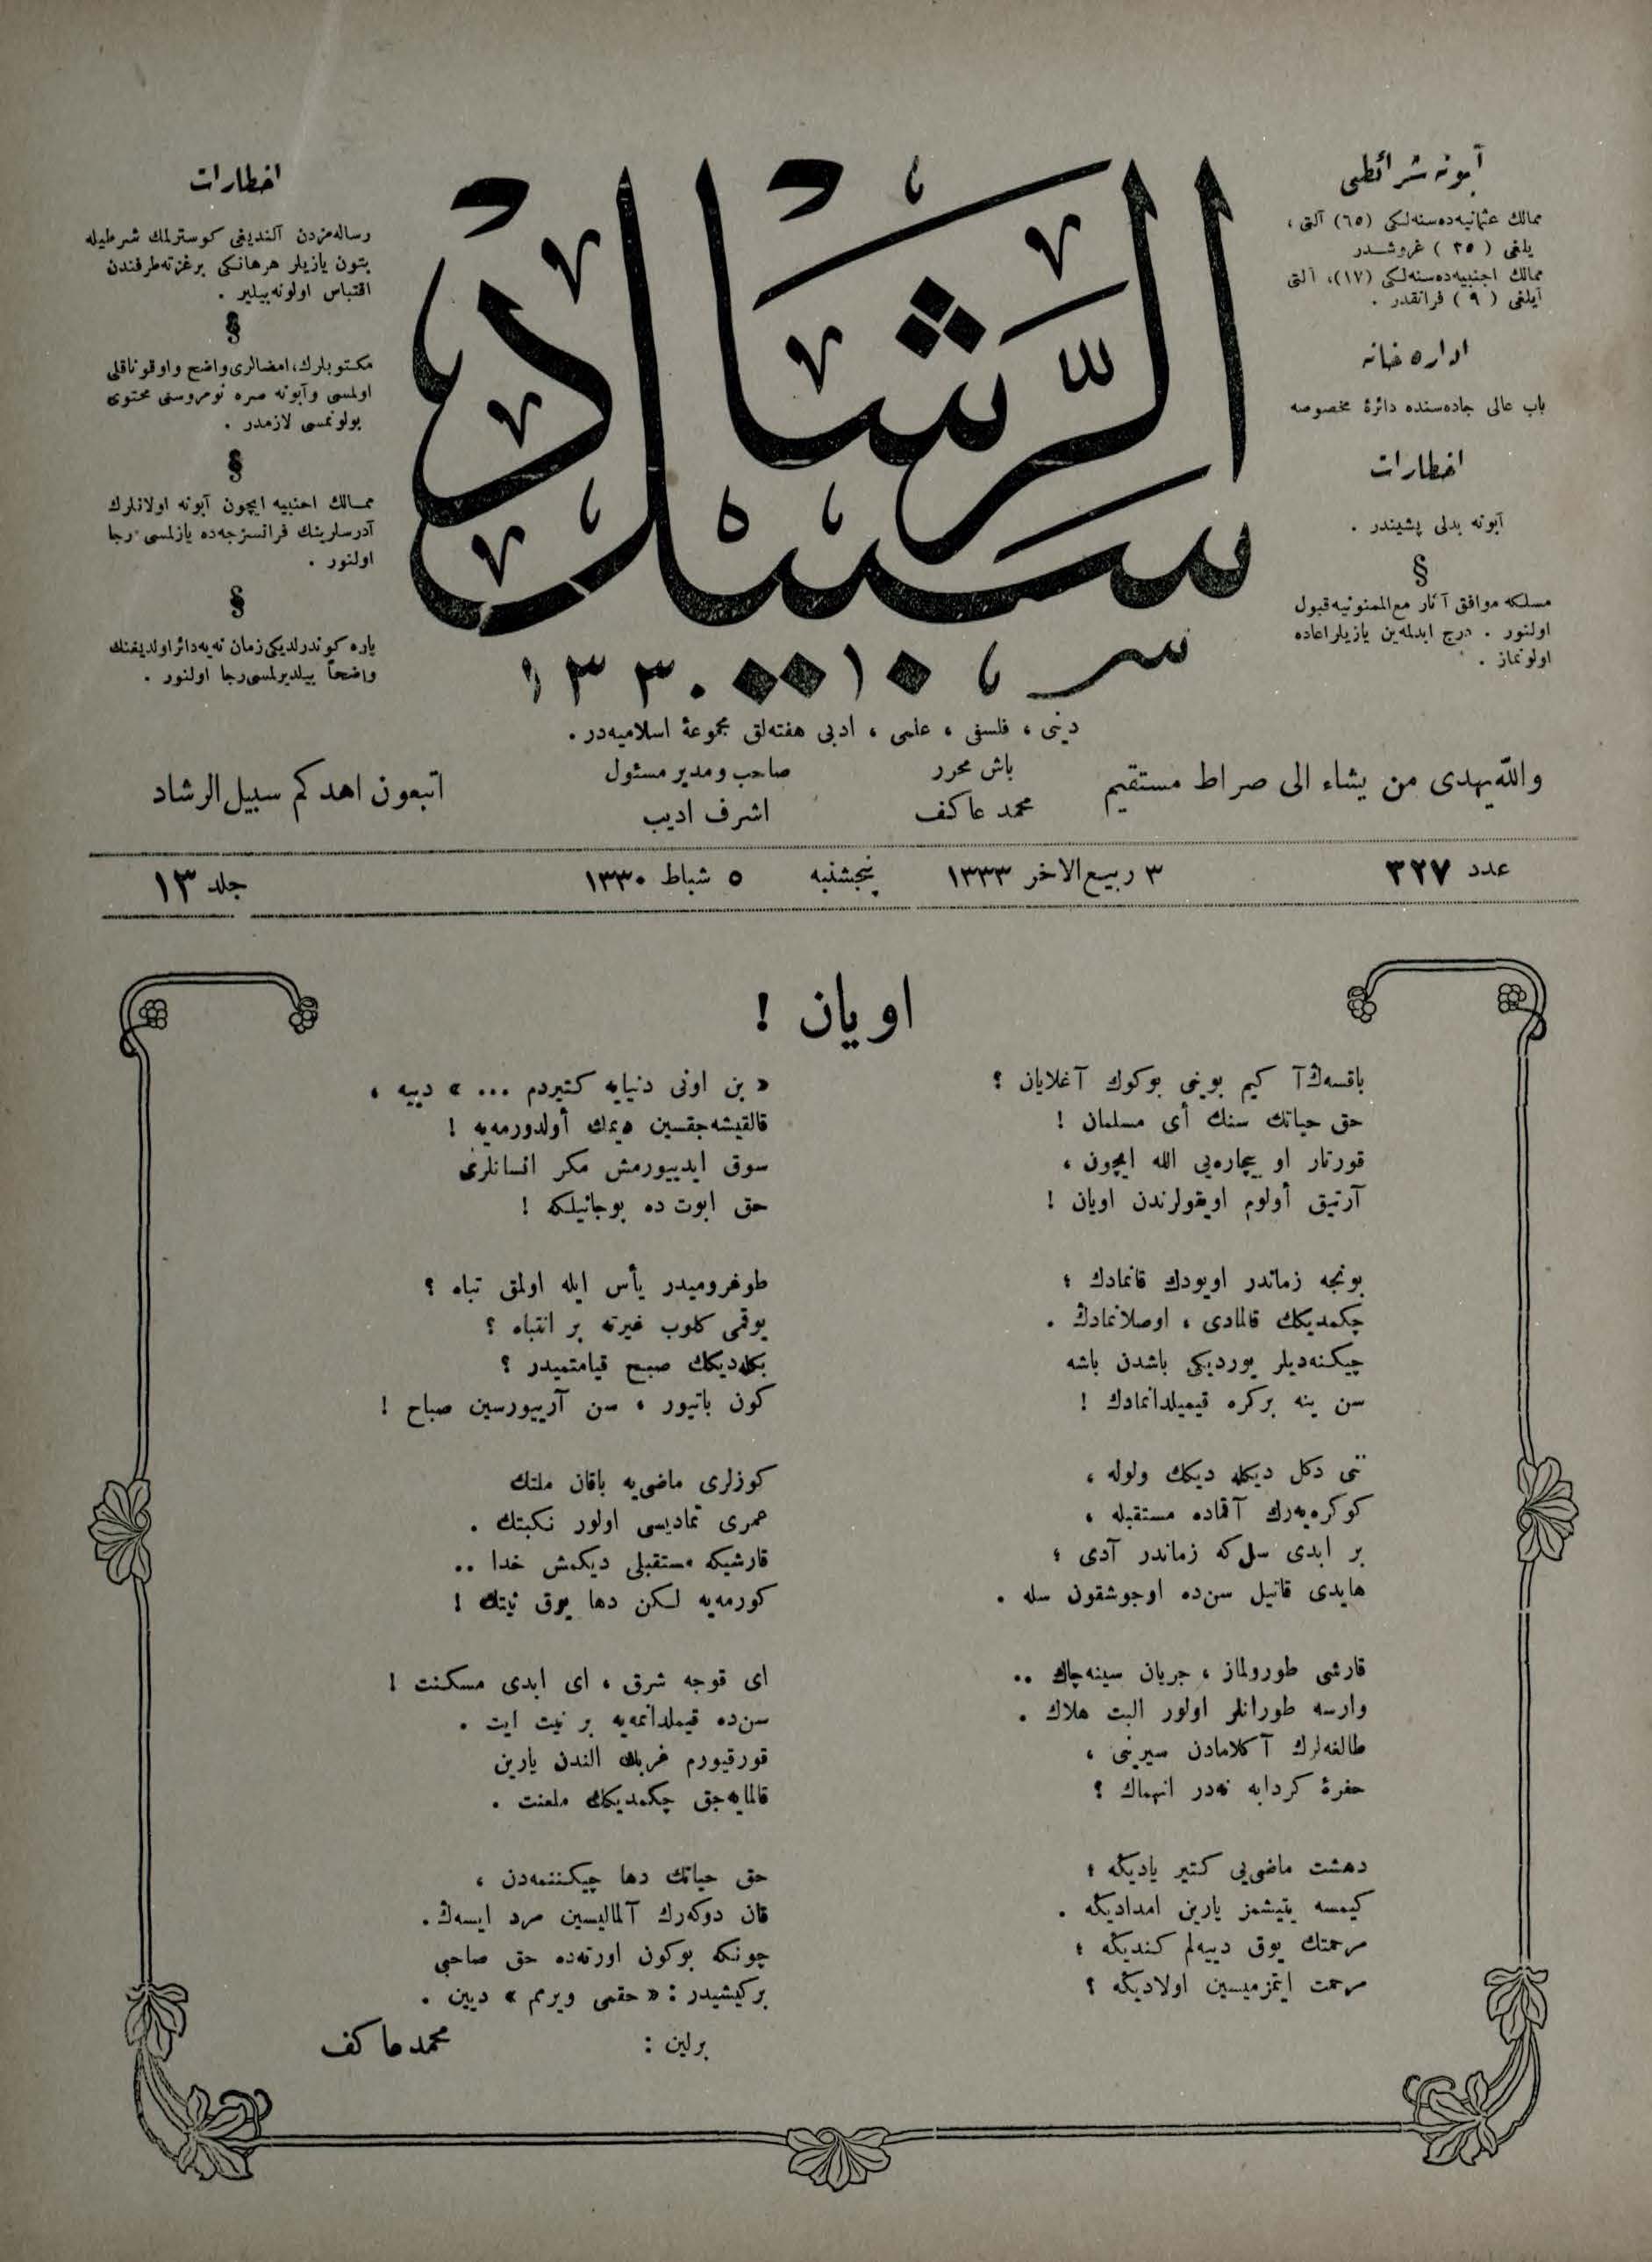 آبونه شرائطی
ممالك عثمانیه‌ده سنه‌لكی (٦٥) آلتی ،
یلغی ( ٣٥ ) غروشدر
ممالك اجنبیه‌ده سنه‌لكی (١٧)، آلتی
آیلغی ( ٩ ) فرانقدر .
اداره خانه
باب عالی جاده‌سنده دائرۀ مخصوصه
اخطارات
آبونه بدلی پشیندر .
§
مسلكه موافق آثار مع‌الممنونیه قبول
اولنور . درج ایدلمه‌ین یازیلر اعاده
اولونماز .
سبیل الرشاد
١٣٣٠
دینی ، فلسفی ، علمی ، ادبی هفته‌لق مجموعۀ اسلامیه‌در .
اخطارات
رساله‌مزدن آلندیغی كوسترلمك شرطیله
بتون یازیلر هر هانكی بر غزته طرفندن
اقتباس اولونه‌بیلیر .
§
مكتوبلرك، امضالری واضح و اوقوناقلی
اولمسی و آبونه صره نومروسنی محتوی
بولونمسی لازمدر .
§
ممالك اجنبیه ایچون آبونه اولانلرك
آدرسلرینك فرانسزجه‌ده یازلمسی رجا
اولنور .
§
پاره كوندرلدیكی زمان نه‌یه دائر اولدیغنك
واضحاً بیلدیرلمسی رجا اولنور .
والله یهدی من یشاء الی صراط مستقیم
باش محرر
محمد عاكف
صاحب و مدیر مسئول
اشرف ادیب
اتبعون اهدكم سبیل الرشاد
عدد ٣٢٧
٣ ربیع الاخر ١٣٣٣ پنجشنبه ٥ شباط ١٣٣٠
جلد ١٣
اویان !
باقسه‌ڭ آ كیم بوینی بوكوك آغلایان ؟
حق حیاتك سنك أی مسلمان !
قورتار او بیچاره‌یی الله ایچون ،
آرتیق أولوم اویقولرندن اویان !
بونجه زماندر اویودك قانمادك ؛
چكمدیكك قالمادی ، اوصلانمادڭ .
چیكنه‌دیلر یوردیكی باشدن باشه
سن ینه بر كره قیمیلدانمادك !
ننی دكل دیكله دیكك ولوله ،
كوكره‌یه‌رك آقماده مستقبله ،
بر ابدی سل كه زماندر آدی ؛
هایدی قاتیل سن‌ده او جوشقون سله .
قارشی طورولماز ، جریان سینه‌چاك ..
وارسه طورانلر اولور البت هلاك .
طالغه‌لرك آكلامادن سیرنی ،
حفرۀ كردابه نه‌در انهماك ؟
دهشت ماضی‌یی كتیر یادیكه ؛
كیمسه یتیشمز یارین امدادیكه .
مرحمتك یوق دییه‌لم كندیكه ؛
مرحمت ایتمزمیسین اولادیكه ؟
« بن اونی دنیایه كتیردم ... » دییه ،
قالقیشه‌جقسین دیمك أولدورمه‌یه !
سوق ایدییورمش مكر انسانلری
حق ابوت ده بو جانیلكه !
طوغرومیدر یأس ایله اولمق تباه ؟
یوقمی كلوب غیرته بر انتباه ؟
بكله‌دیكك صبح قیامتمیدر ؟
كون باتیور ، سن آرییورسین صباح !
كوزلری ماضی‌یه باقان ملتك
عمری تمادیسی اولور نكبتك .
قارشیكه مستقبلی دیكمش خدا ..
كورمه‌یه لكن دها یوق نیتك !
ای قوجه شرق ، ای ابدی مسكنت !
سن‌ده قیملدانمه‌یه بر نیت ایت .
قورقیورم غربك الندن یارین
قالمایه‌جق چكمدیكك ملعنت .
حق حیاتك دها چیكننمه‌دن ،
قان دوكه‌رك آلمالیسین مرد ایسه‌ڭ .
چونكه بوكون اورته‌ده حق صاحبی
بر كیشیدر : « حقمی ویرمم » دیین .
برلین : محمد عاكف